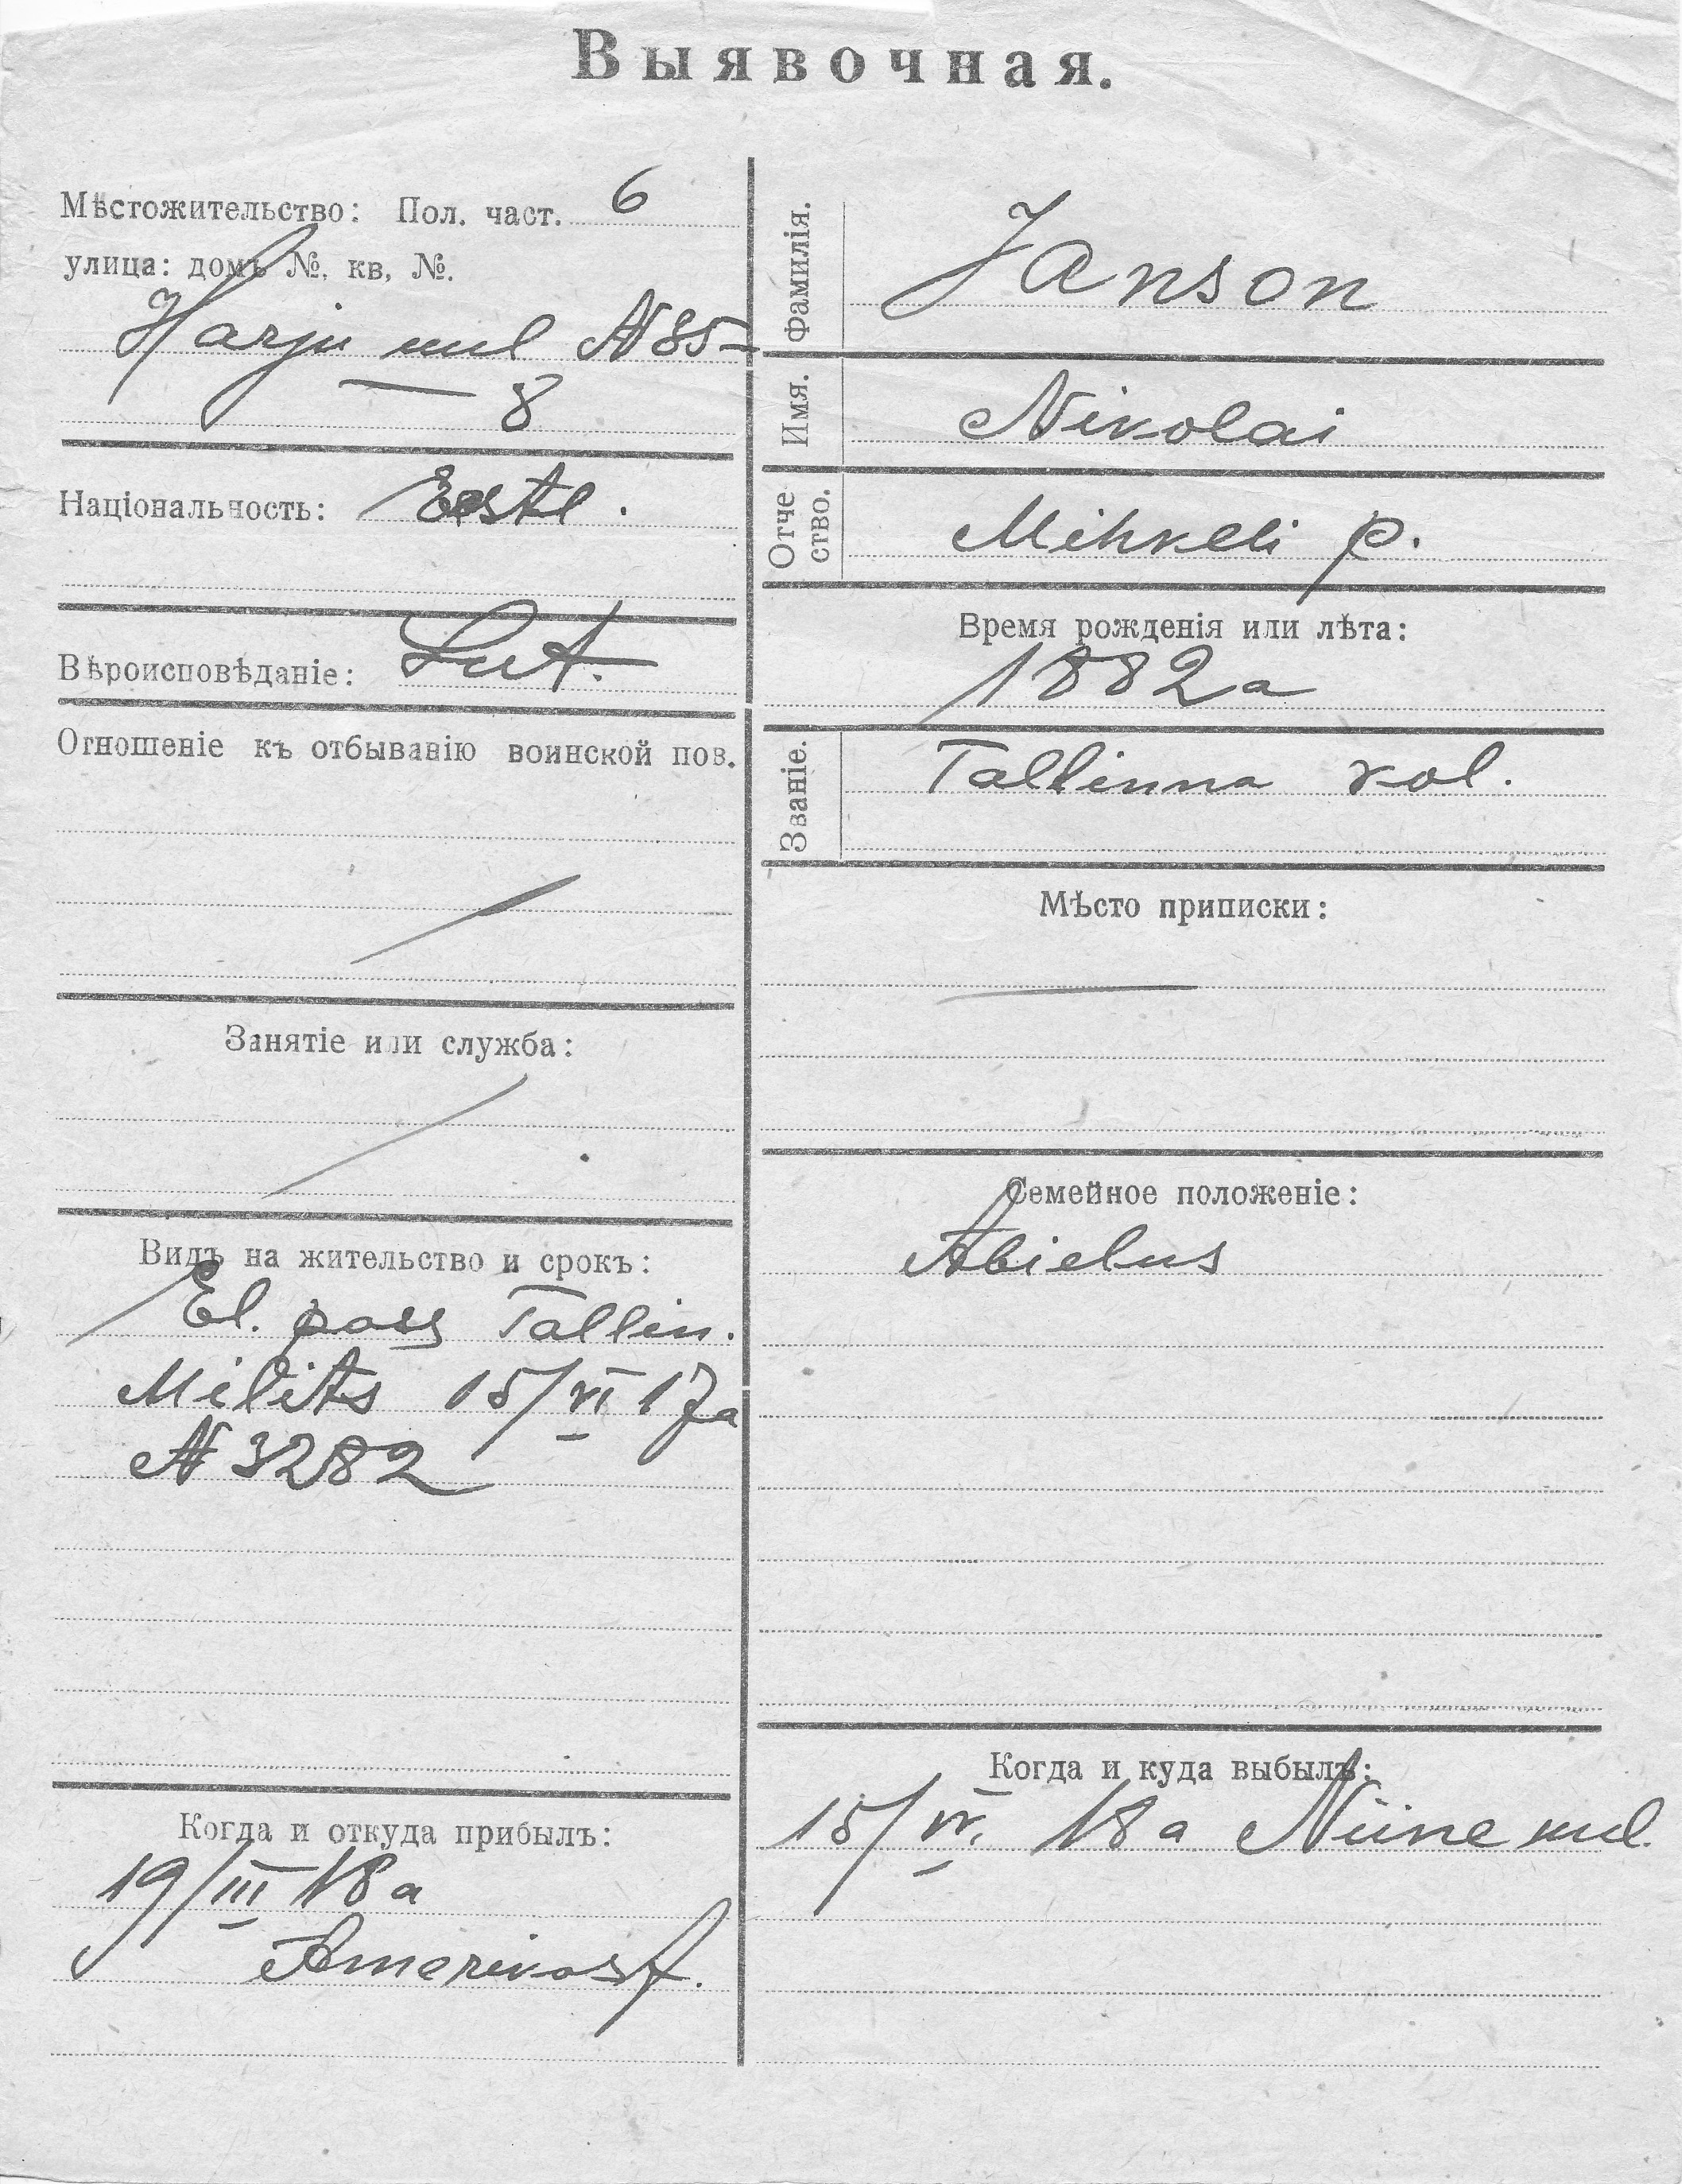 Выявочная.
Мѣстожительство: Пол. част. 6
улица: домъ №, кв, №.
Harju uul N 35-
— 8
Національность: Eestl.
Вѣроисповѣданіе: Lut.
Отношеніе къ отбыванію воинской пов.
Занятіе или служба:
Видъ на жительство и срокъ:
El. pass Tallin.
Milits 15/VI 17a
N 3282
Когда и откуда прибылъ:
19/III 18a
Amerikast.
Фамилія. Janson
Имя. Nikolai
Отчество. Mihkeli p.
Время рожденія или лѣта:
1882a
Званіе. Tallinna kol.
Мѣсто приписки:
Семейное положеніе:
Abielus
Когда и куда выбылъ:
15/IV. 18a Niine uul.